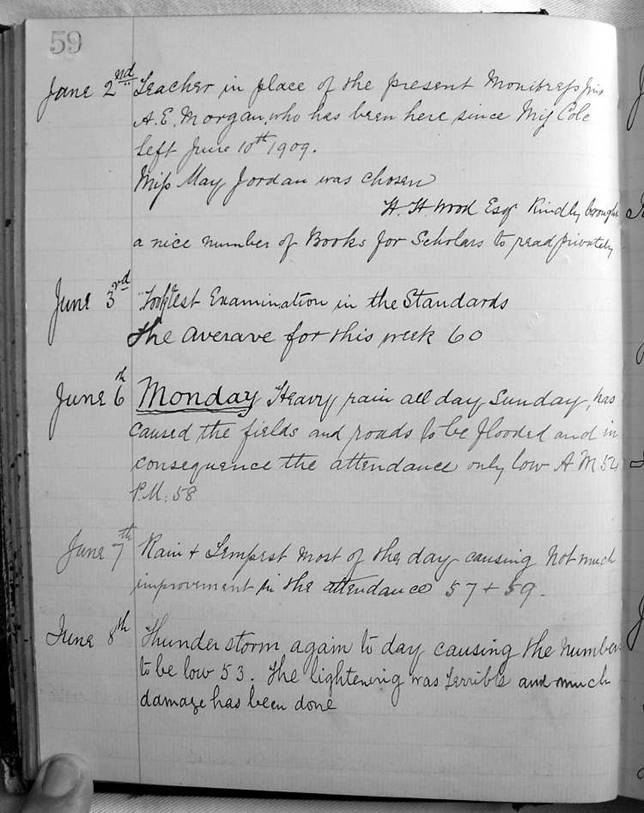 59
June 2nd Teacher in place of the present Monitress Miss
A. E. Morgan, who has been here since Miss Cole
left June 10th 1909.
Miss May Jordan was chosen
H. H. Wood Esqr Kindly brought
a nice number of Books for Scholars to read privately
June 3rd Test Examination in the Standards
The Averave for this week 60
June 6th Monday Heavy rain all day Sunday, has
caused the fields and roads to be flooded and in
consequence the attendance only low A M 52
P.M: 58
June 7th Rain + Tempest most of the day causing not much
improvement in the attendance 57 + 59.
June 8th Thunder storm again to day causing the number
to be low 53. The lightening was terrible and much
damage has been done